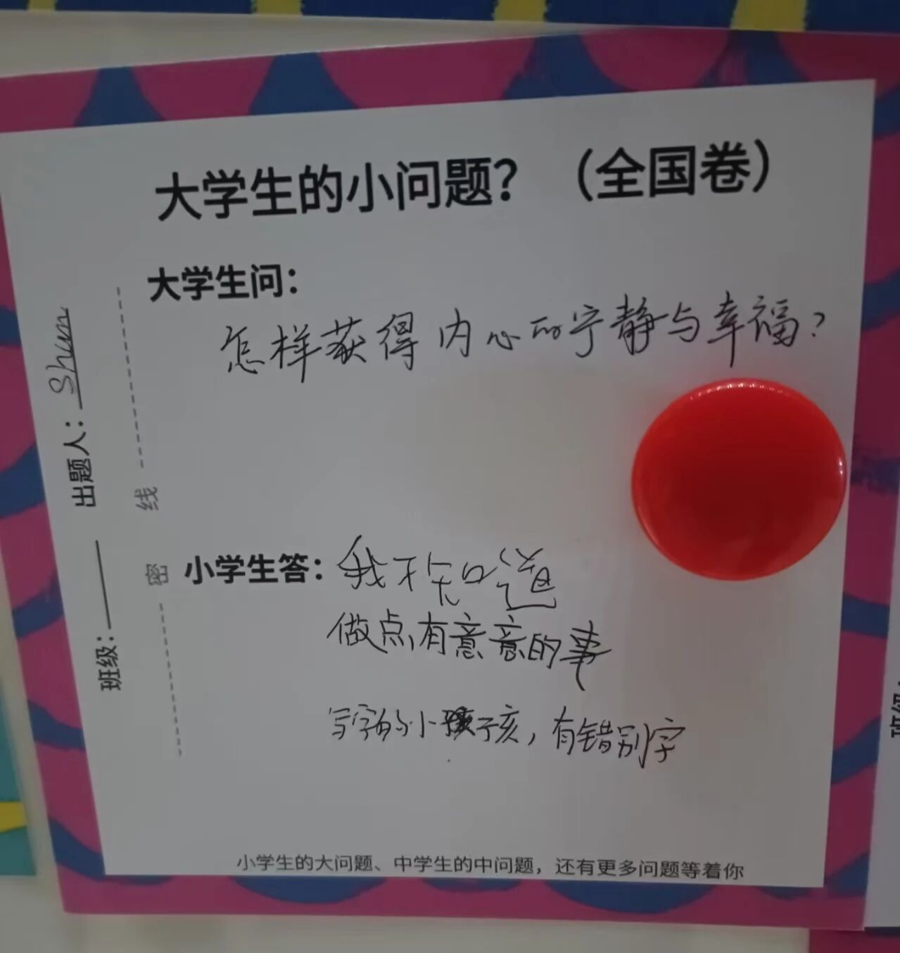 大学生的小问题？（全国卷）
大学生问：
怎样获得内心的宁静与幸福？
出题人：Shun
班级：
线
密
小学生答：我不知道
做点有意意的事
写字的小孩子亥，有错别字
小学生的大问题、中学生的中问题，还有更多问题等着你